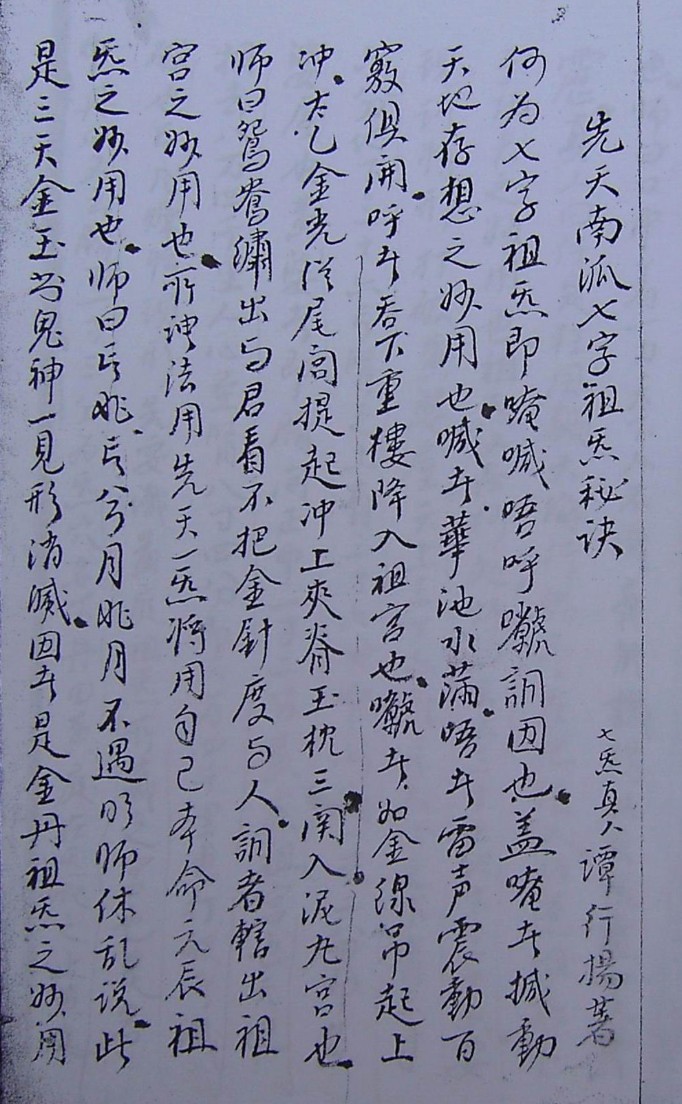 先天南派七字祖炁秘诀
七炁真人谭行揚著
何为七字祖炁即唵㘎唔呼㘓詷因也盖唵者揻動
天地存想之妙用也㘎者華池水满唔者雷声震動百
竅俱開呼者吞下重樓降入祖宫也㘓者如金線吊起上
冲太乙金光從尾闾提起冲上夾脊玉枕三関入泥丸宫也
师曰鴛鴦綉出与君看不把金針度与人詷者轄出祖
宫之妙用也所謂法用先天一炁將用自己本命元辰祖
炁之妙用也师曰兵非兵分月非月不遇明师休乱説此
是三天金玉書鬼神一見形消滅因者是金丹祖炁之妙用